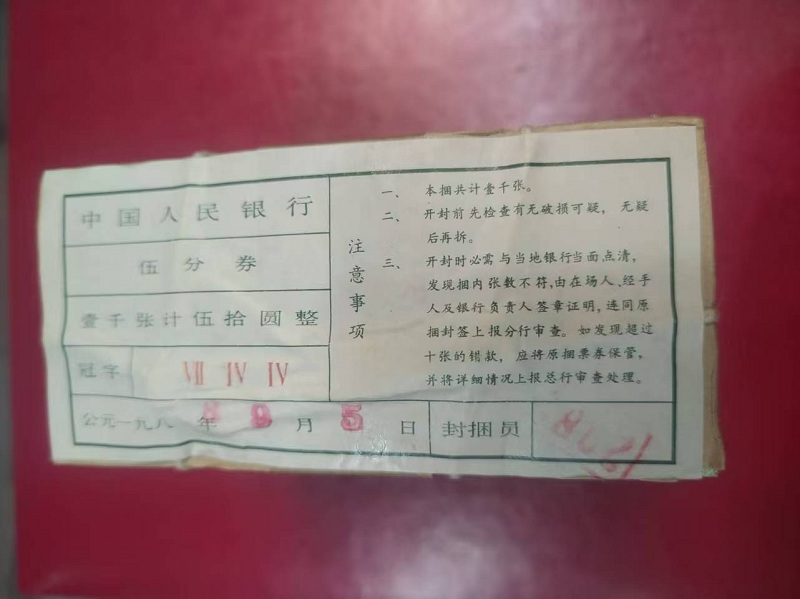 中国人民银行
伍分券
壹千张计伍拾圆整
冠字 VII IV IV
公元一九八 年 9 月 5 日 封捆员
注意事项
一、 本捆共计壹千张。
二、 开封前先检查有无破损可疑， 无疑
后再拆。
三、 开封时必需与当地银行当面点清，
发现捆内张数不符，由在场人、经手
人及银行负责人签章证明，连同原
捆封签上报分行审查。如发现超过
十张的错款， 应将原捆票券保管，
并将详细情况上报总行审查处理。